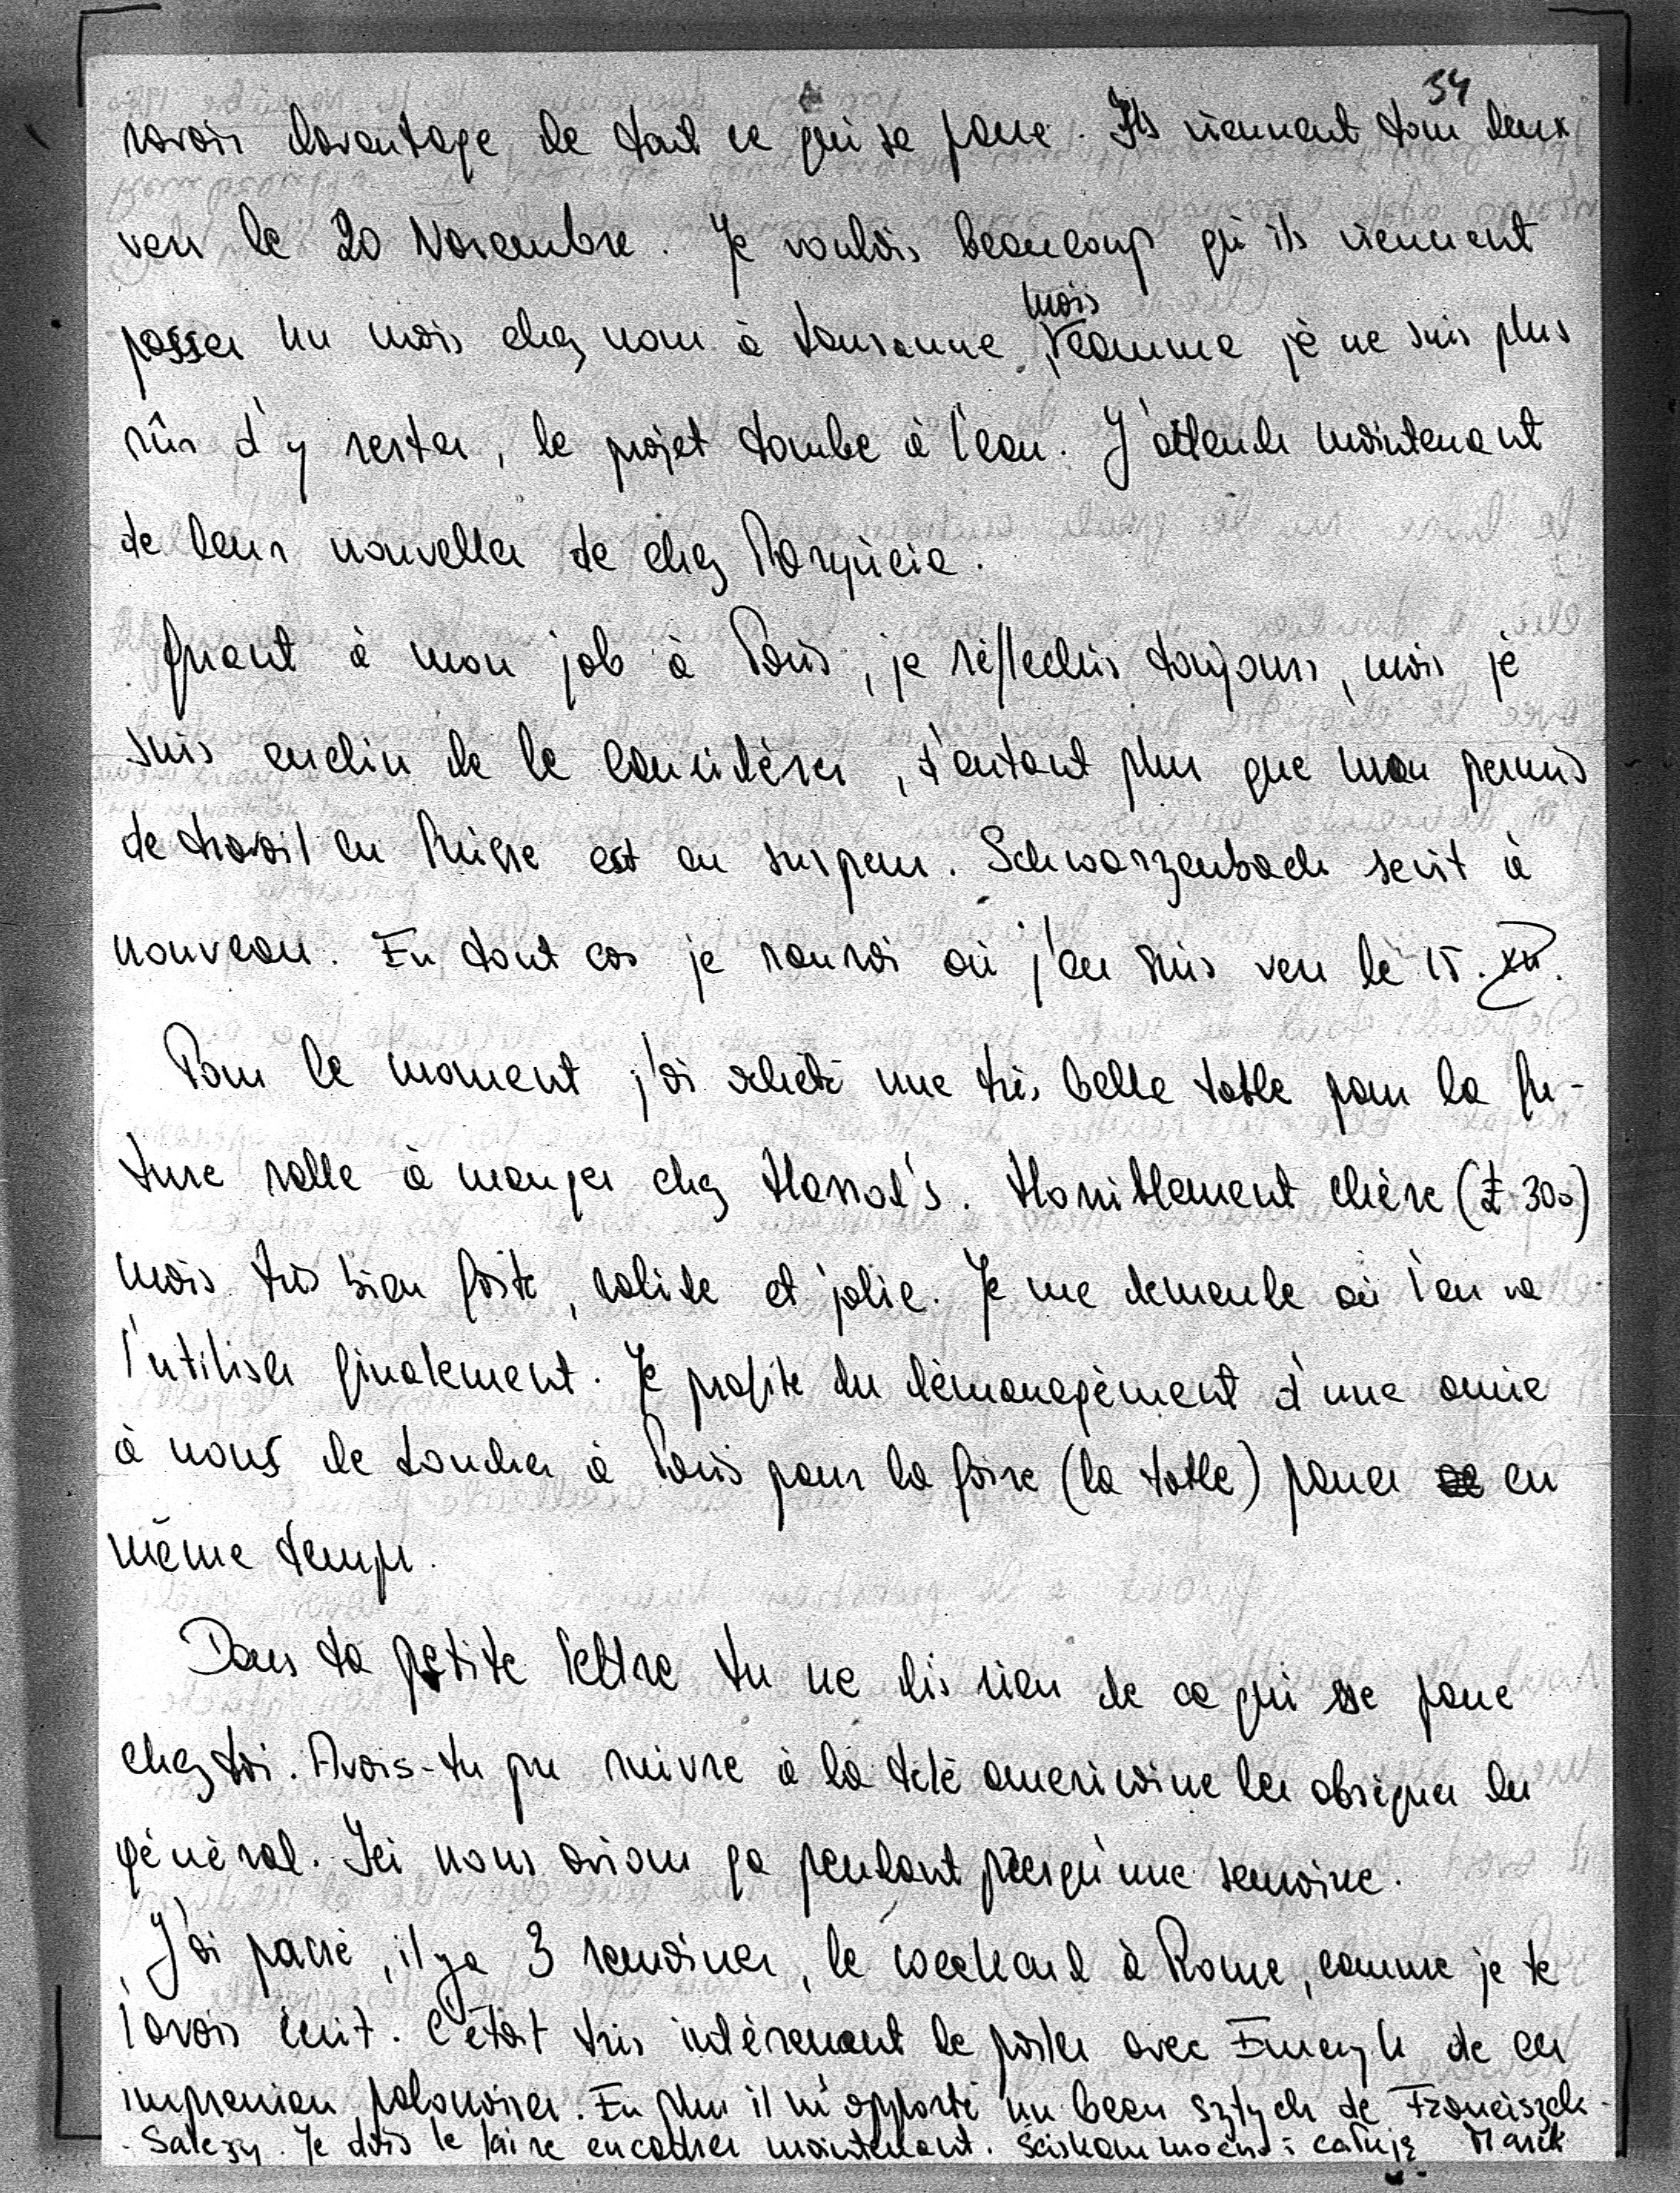 34
savoir davantage de tout ce qui se passe. Ils viennent tous deux
vers le 20 Novembre. Je voulais beaucoup qu'ils viennent
passer un mois chez nous à Lausanne, mais comme je ne suis plus
sûr d'y rester, le projet tombe à l'eau. J'attends maintenant
de leurs nouvelles de chez
Quant à mon job à Paris, je réfléchis toujours, mais je
suis enclin de le considérer, d'autant plus que mon permis
de travail en Suisse est en suspens. Schwarzenbach sévit à
nouveau. En tout cas je saurai où j'en suis vers le 15. XII.
Pour le moment j'ai acheté une très belle table pour la fu-
ture salle à manger chez Harrod's. Horriblement chère (£ 300)
mais très bien faite, solide et jolie. Je me demande où l'on va
l'utiliser finalement. Je profite du déménagement d'une amie
à nous de Londres à Paris pour la faire (la table) passer en
même temps.
Dans ta petite lettre tu ne dis rien de ce qui se passe
chez toi. Avais-tu pu suivre à la télé americaine les obsèques du
général. Ici nous avions ça pendant presqu'une semaine.
J'ai passé, il y a 3 semaines, le weekend à Rome, comme je te
l'avais écrit. C'était très intéressant de parler avec Emeryk de ces
impressions polonaises. En plus il m'apporté un beau sztych de Franciszek
Salezy. Je dois le faire encadrer maintenant. Ściskam mocno i całuję Marek